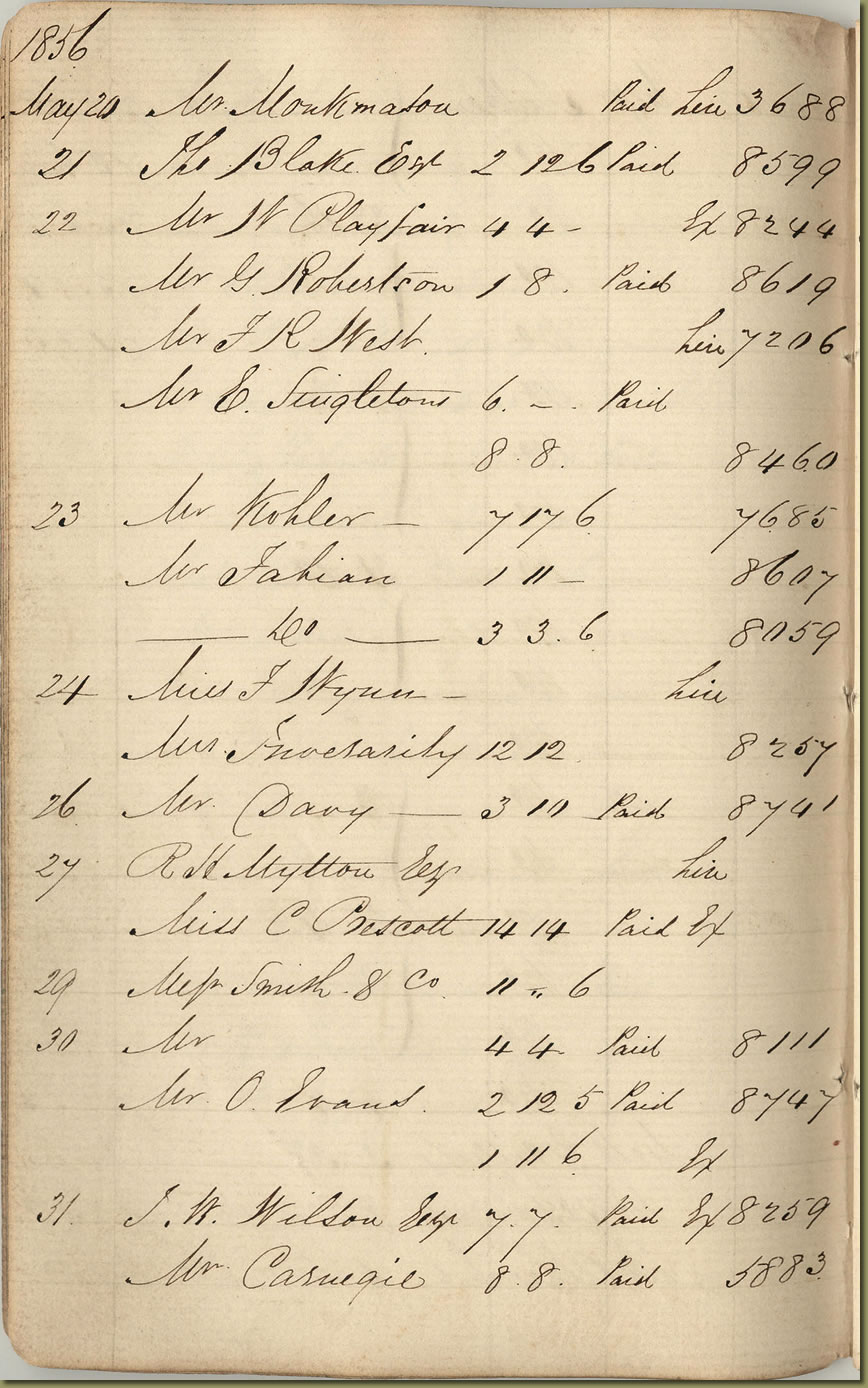 1856
May 20 Mr. Monkmason Paid Lin 3688
21 Tho Blake Esqr 2 12 6 Paid 8599
22 Mr W Playfair 4 4 - Ex 8244
Mr G. Robertson 1 8 . Paid 8619
Mr F R West. Lin 7206
Mr E. Singleton 6. - . Paid
8. 8. 8460
23 Mr Kohler — 7 17 6 7685
Mr Fabian 1 11 - 8607
— Do — 3 3. 6 8059
24 Miss F Wynn - Lin
Mrs. Inverarity 12 12 8257
26 Mr. Davy — 3 10 Paid 8741
27 R H Mytton Esq Lin
Miss C Prescott 14 14 Paid Ex
29 Messrs Smith & Co. 11 " 6
30 Mr 4 4 - Paid 8111
Mr. O. Evans. 2 12 5 Paid 8747
1 11 6 Ex
31. J. W. Wilson Esqr 7. 7. Paid Ex 8259
Mr. Carnegie 8. 8. Paid 5883